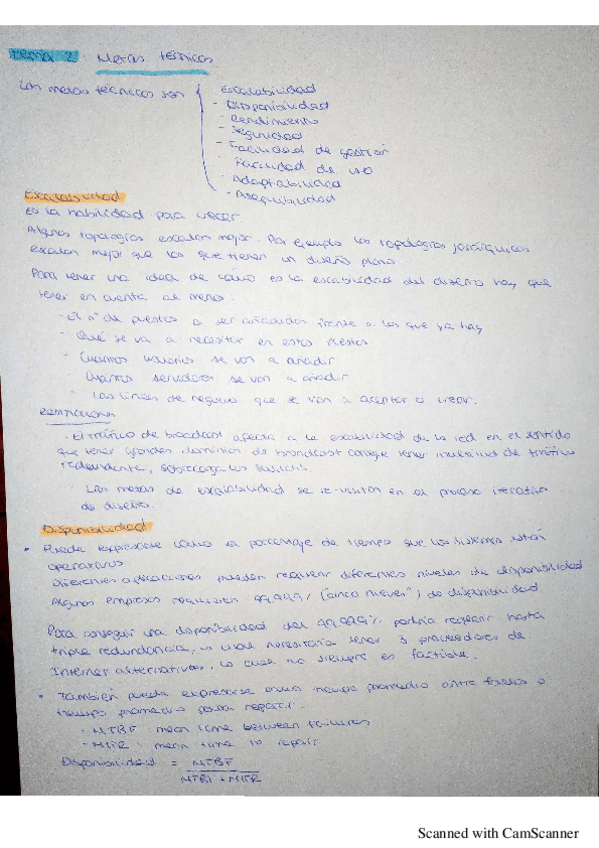 TEMA 2: Metas técnicas
Las metas técnicas son
Escalabilidad
- Disponibilidad
- Rendimiento
- Seguridad
- Facilidad de gestión
- Facilidad de uso
- Adaptabilidad
- Asequibilidad
Escalabilidad
Es la habilidad para crecer.
Algunas topologías escalan mejor. Por ejemplo las topologías jerárquicas
escalan mejor que las que tienen un diseño plano.
Para tener una idea de cómo es la escabilidad del diseño hay que
tener en cuenta al menos:
- El nº de puestos a ser añadidos frente a los que ya hay
- Qué se va a necesitar en estos
- Cuántos usuarios se van a añadir
- Cuántos servidores se van a añadir
- Las líneas de negocio que se van a aceptar o crear.
Restricciones
- El tráfico de broadcast afecta a la escabilidad de la red en el sentido
que tener grandes dominios de broadcast tener de tráfico
redundante, sobrecarga los switchs.
- Las metas de escalabilidad se re-visitan en el proceso iterativo
de diseño.
Disponibilidad
• Puede expresarse como la porcentaje de tiempo que los sistemas están
operativos
Diferentes aplicaciones pueden requerir diferentes niveles de disponibilidad
Algunas empresas requieren 99,999% ("cinco nueves") de disponibilidad
Para conseguir una disponibilidad del 99,999% podría requerir hasta
triple redundancia, lo cual necesitaría tener 3 proveedores de
Internet alternativos, lo cual no siempre es factible.
• También puede expresarse como tiempo promedio entre fallos o
tiempo promedio para reparar.
- MTBF: mean time between failures
- MTTR: mean time to repair
Disponibilidad = MTBF
MTBF + MTTR
Scanned with CamScanner